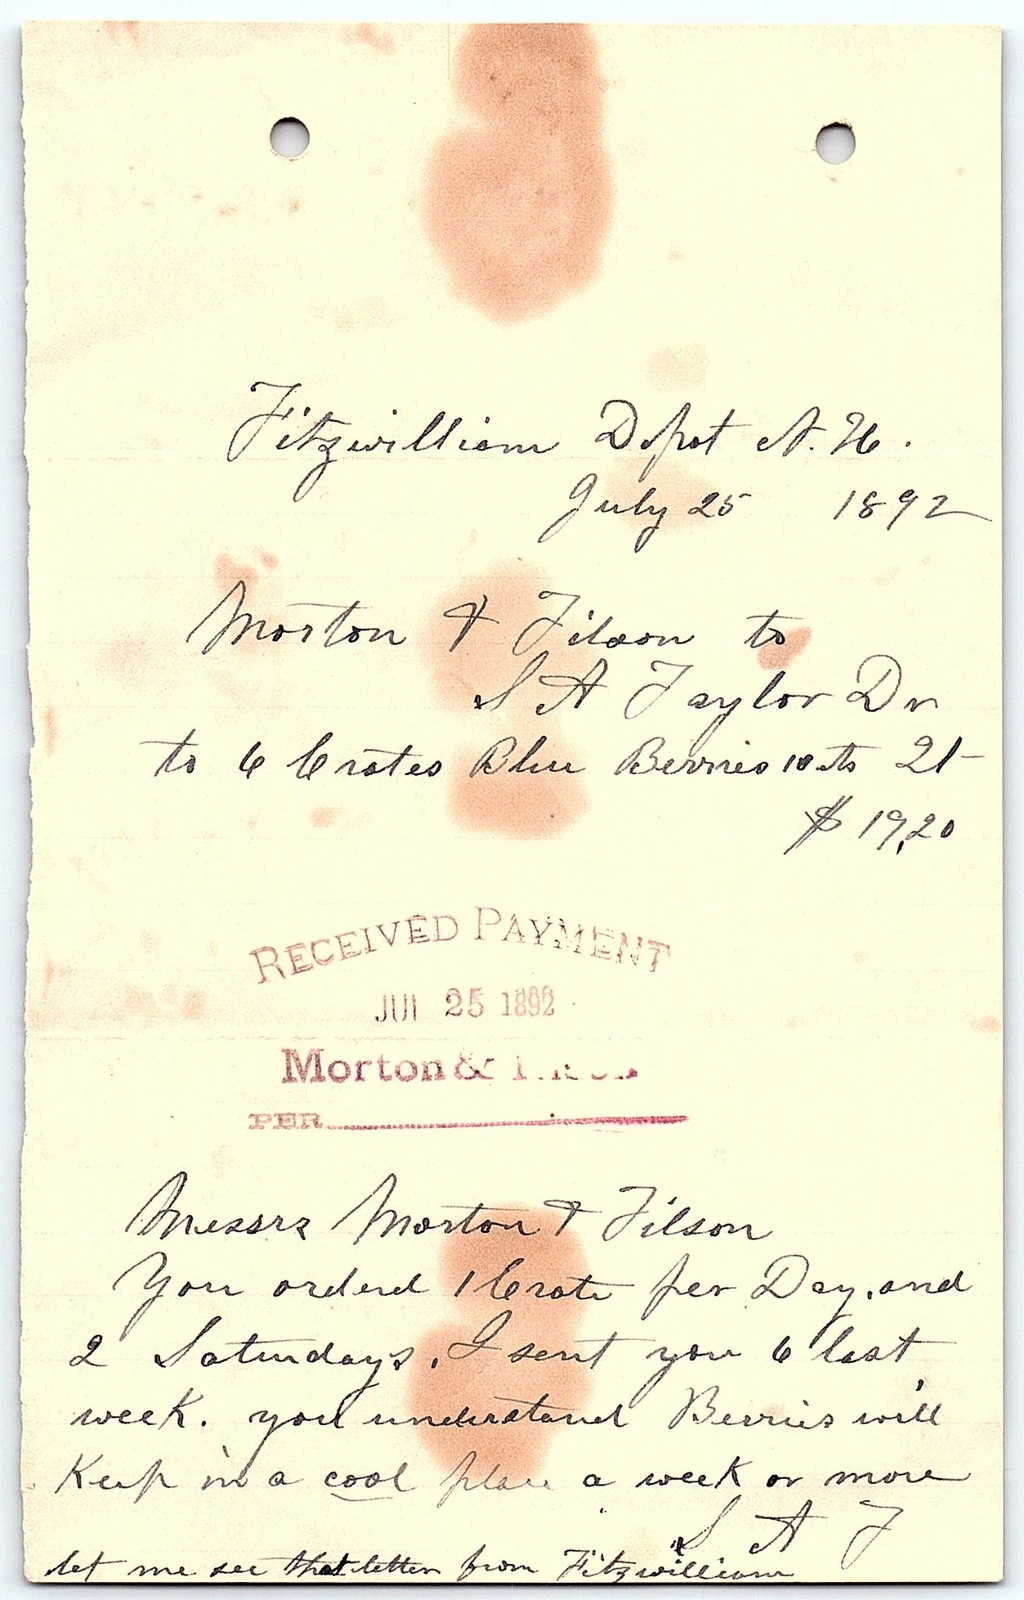 Fitzwilliam Depot N.H.
July 25 1892
Morton & Filson to
S A Taylor Dr
to 6 Crates Blue Berries 10 21
$ 19,20
RECEIVED PAYMENT
JUL 25 1892
Morton &
PER
Messrs Morton & Filson
You orderd 1 Crate per Day, and
2 Saturdays, I sent you 6 last
week. you understand Berries will
Keep in a cool place a week or more
S A T
let me see that letter from Fitzwilliam